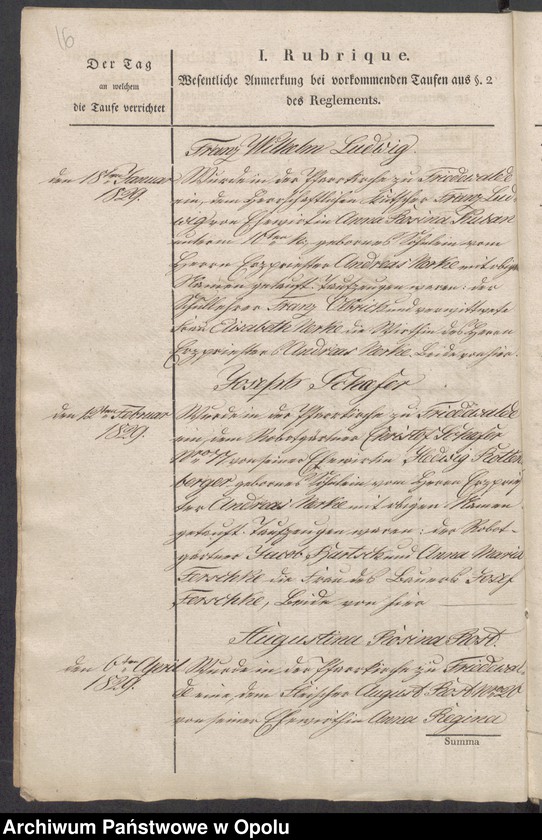 16
Der Tag
an welchem
die Taufe verrichtet
I. Rubrique.
Wesentliche Anmerkung bei vorkommenden Taufen aus §. 2
des Reglements.
Franz Wilhelm Ludwig.
den 18ten Januar
1829.
Wurde in der Pfarrkirche zu Friedewalde
ein, dem Herrschaftlichen Kutscher Franz Lud-
wig von Ehewirtin Anna Rosina
unterm 16ten gebornes Söhnlein vom
Herrn Erzpriester Andreas Merke mit obigen
Namen getauft. Taufzeugen waren: der
Schullehrer Franz Olbrich und verwittwete
Frau Elisabeth Merke die Wirthin des Herrn
Erzpriesters Andreas Merke, Beide von hier.
Joseph Schäfer
den 12ten Februar
1829.
Wurde in der Pfarrkirche zu Friedewalde
ein, dem Robotgärtner Christof Schäfer
Nro 77 von seiner Ehewirtin Hedwig Rotten-
berger gebornes Söhnlein vom Herrn Erzprie-
ster Andreas Merke mit obigen Namen
getauft. Taufzeugen waren: der Robot-
gärtner Jacob und Anna Maria
Ferschke die Frau des Bauers Josef
Ferschke, Beide von hier
Augustina Rosina Rost.
den 6ten April
1829.
Wurde in der Pfarrkirche zu Friedewal-
de eine, dem Fleischer August Rost Nro 20
von seiner Ehewirthin Anna Regina
Summa
Archiwum Państwowe w Opolu